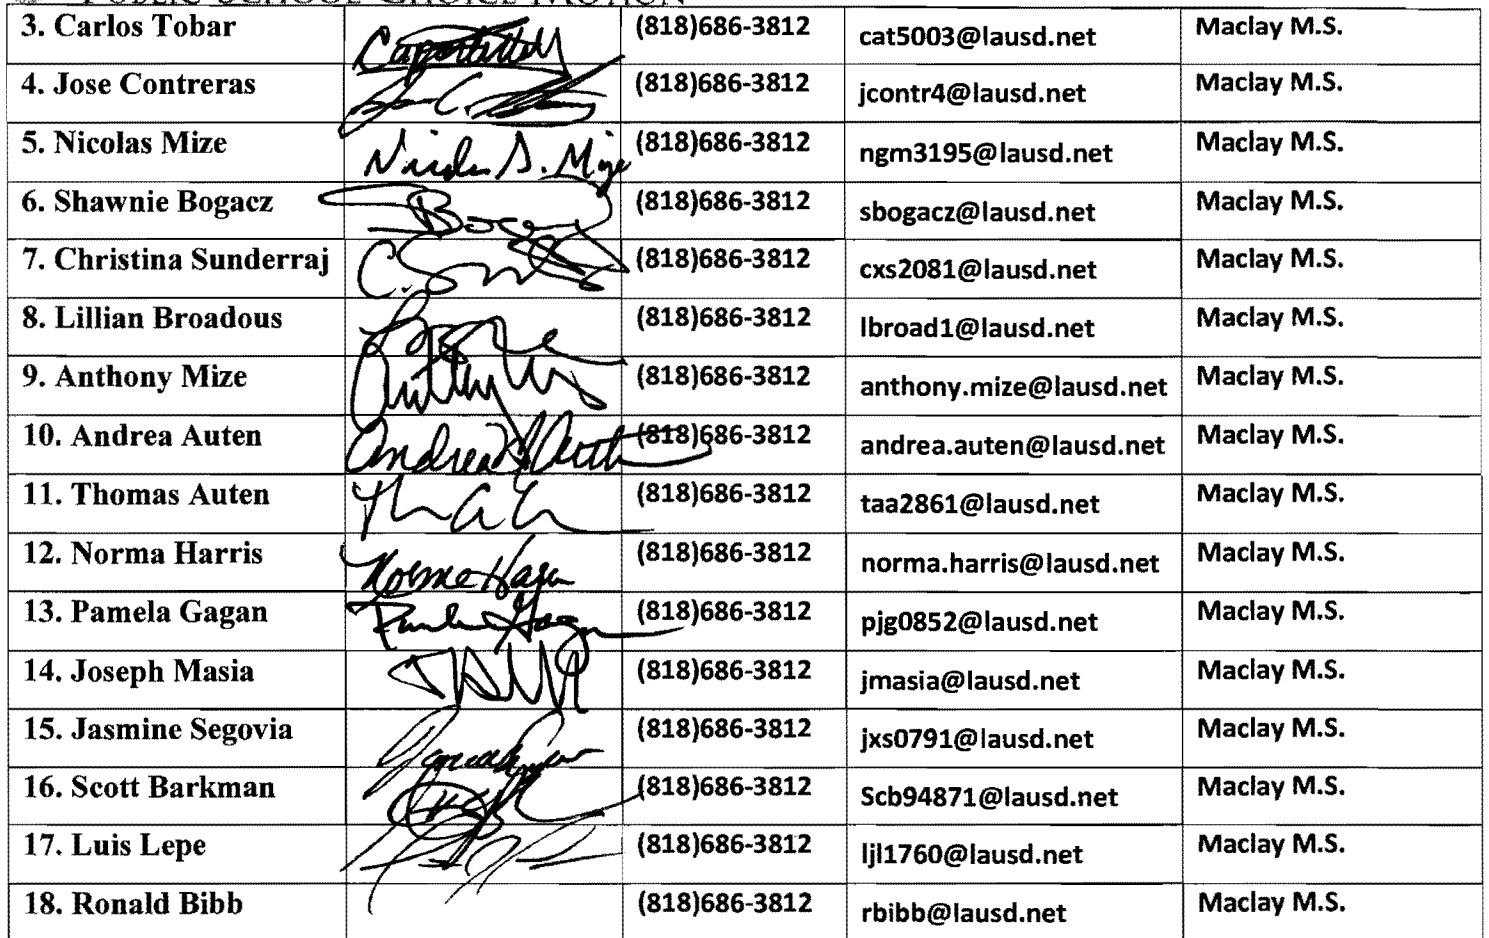 PUBLIC SCHOOL CHOICE MOTION
3. Carlos Tobar (818)686-3812 cat5003@lausd.net Maclay M.S.
4. Jose Contreras (818)686-3812 jcontr4@lausd.net Maclay M.S.
5. Nicolas Mize (818)686-3812 ngm3195@lausd.net Maclay M.S.
6. Shawnie Bogacz (818)686-3812 sbogacz@lausd.net Maclay M.S.
7. Christina Sunderraj (818)686-3812 cxs2081@lausd.net Maclay M.S.
8. Lillian Broadous (818)686-3812 lbroad1@lausd.net Maclay M.S.
9. Anthony Mize (818)686-3812 anthony.mize@lausd.net Maclay M.S.
10. Andrea Auten (818)686-3812 andrea.auten@lausd.net Maclay M.S.
11. Thomas Auten (818)686-3812 taa2861@lausd.net Maclay M.S.
12. Norma Harris (818)686-3812 norma.harris@lausd.net Maclay M.S.
13. Pamela Gagan (818)686-3812 pjg0852@lausd.net Maclay M.S.
14. Joseph Masia (818)686-3812 jmasia@lausd.net Maclay M.S.
15. Jasmine Segovia (818)686-3812 jxs0791@lausd.net Maclay M.S.
16. Scott Barkman (818)686-3812 Scb94871@lausd.net Maclay M.S.
17. Luis Lepe (818)686-3812 ljl1760@lausd.net Maclay M.S.
18. Ronald Bibb (818)686-3812 rbibb@lausd.net Maclay M.S.